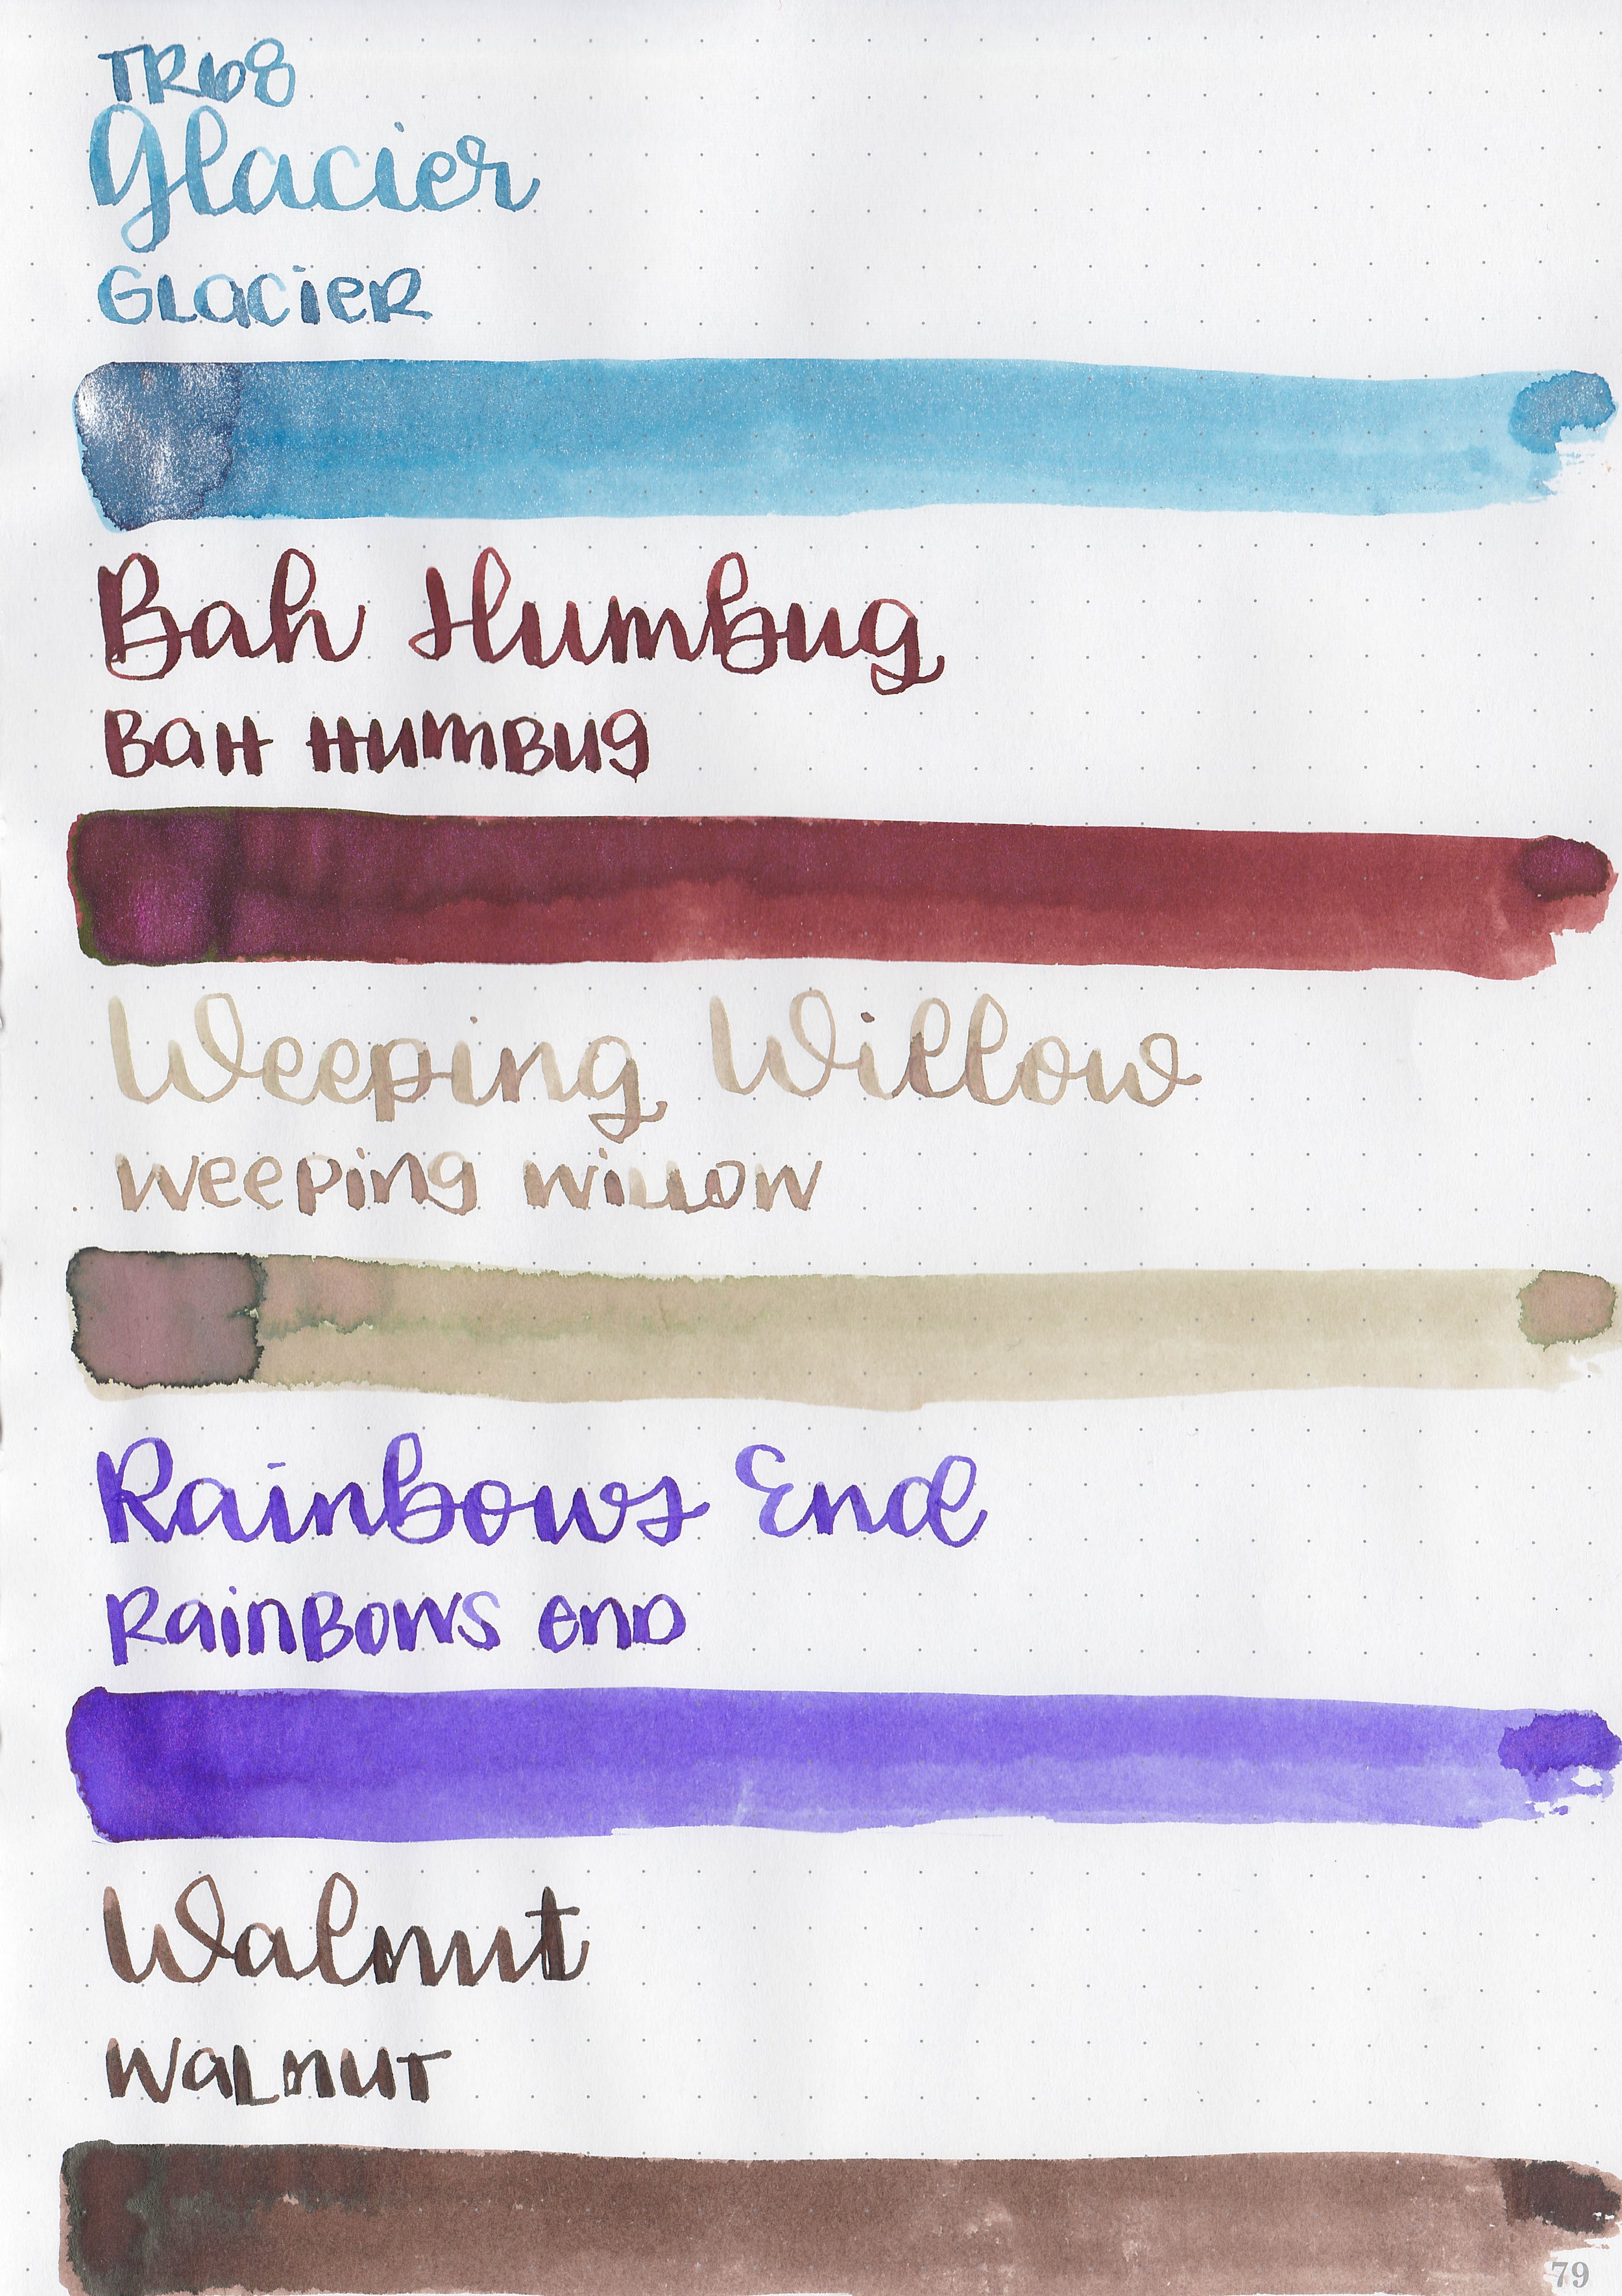 TR68
Glacier
Glacier
Bah Humbug
Bah Humbug
Weeping Willow
Weeping Willow
Rainbows End
Rainbows End
Walnut
Walnut
79